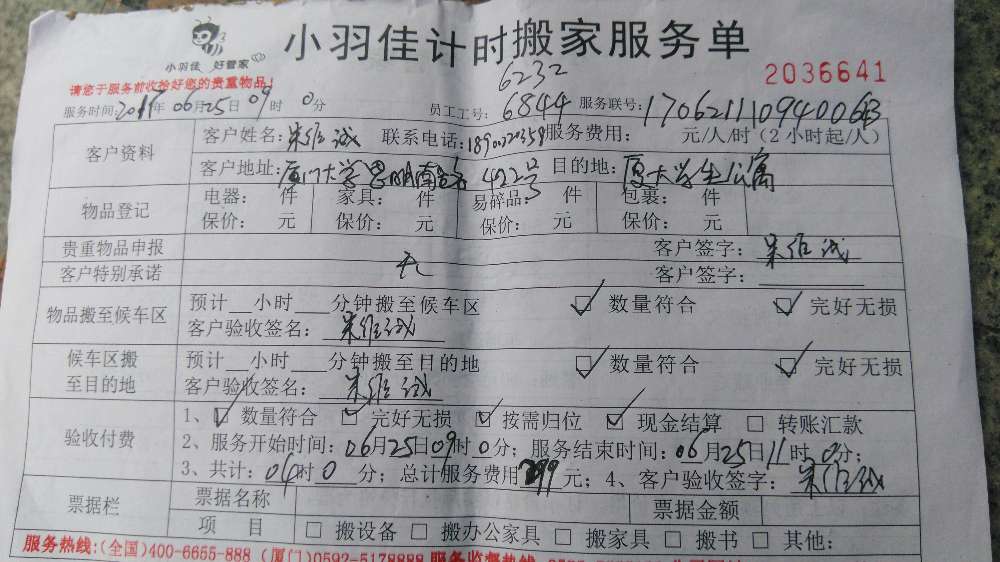 小羽佳计时搬家服务单
小羽佳 好管家
请您于服务前收拾好您的贵重物品!
2036641
6232
服务时间:2017年06月25日09时0分 员工工号: 6844 服务联号:
客户资料 客户姓名: 联系电话: 服务费用: 元/人/时(2小时起/人)
客户地址:厦门大学思明南路422号 目的地:厦大学生公寓
物品登记 电器: 件 家具: 件 易碎品: 件 包裹: 件
保价: 元 保价: 元 保价: 元 保价: 元
贵重物品申报 无 客户签字:
客户特别承诺 客户签字:
物品搬至候车区 预计__小时___分钟搬至候车区 ☑ 数量符合 ☑ 完好无损
客户验收签名:
候车区搬至目的地 预计__小时___分钟搬至目的地 ☑ 数量符合 ☑ 完好无损
客户验收签名:
验收付费 1、☑ 数量符合 ☑ 完好无损 ☑ 按需归位 ☑ 现金结算 □ 转账汇款
2、服务开始时间:06月25日09时0分;服务结束时间:06月25日11时0分;
3、共计:04时0分;总计服务费用299元;4、客户验收签字:
票据栏 票据名称 票据金额
项 目 □ 搬设备 □ 搬办公家具 □ 搬家具 □ 搬书 □ 其他:
服务热线:(全国)400-6655-888 (厦门)0592-5178888 服务监督热线: